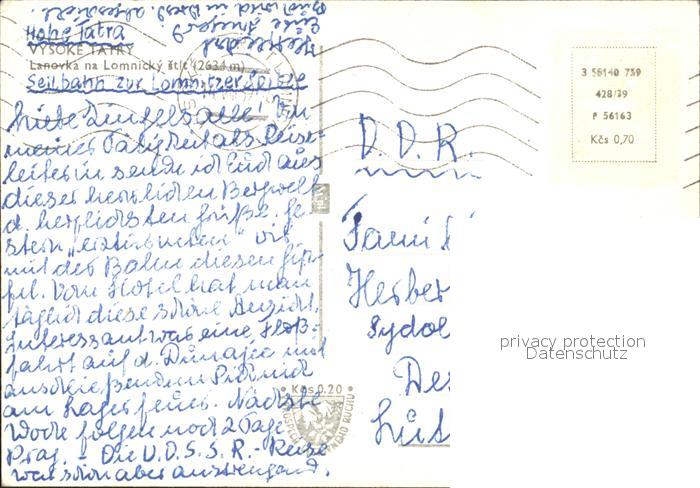 Hohe Tatra
VYSOKÉ TATRY
Lanovka na Lomnický štít (2634 m)
Seilbahn zur Lomnitzer Spitze
Liebe Zingels alle! Von
meiner Tätigkeit als Reise-
leiterin sende ich Euch aus
dieser herrlichen Bergwelt
d. herzlichsten Grüße. Ge-
stern "erstürmten" wir
mit der Bahn diesen Gip-
fel. Vom Hotel hat man
täglich diese schöne Ansicht.
Interessant war eine Floß-
fahrt auf d. Dunajec mit
anschließendem Picknick
am Lagerfeuer. Nächste
Woche folgen noch 2 Tage
Prag. - Die U.D.S.S.R.-Reise
war schön aber anstrengend.
Herzlichst
Eure
3 56140 759
428/79
P 56163
Kčs 0,70
D.D.R.
Famil
Herber
Sydol
Des
Kčs 0.20
privacy protection
Datenschutz